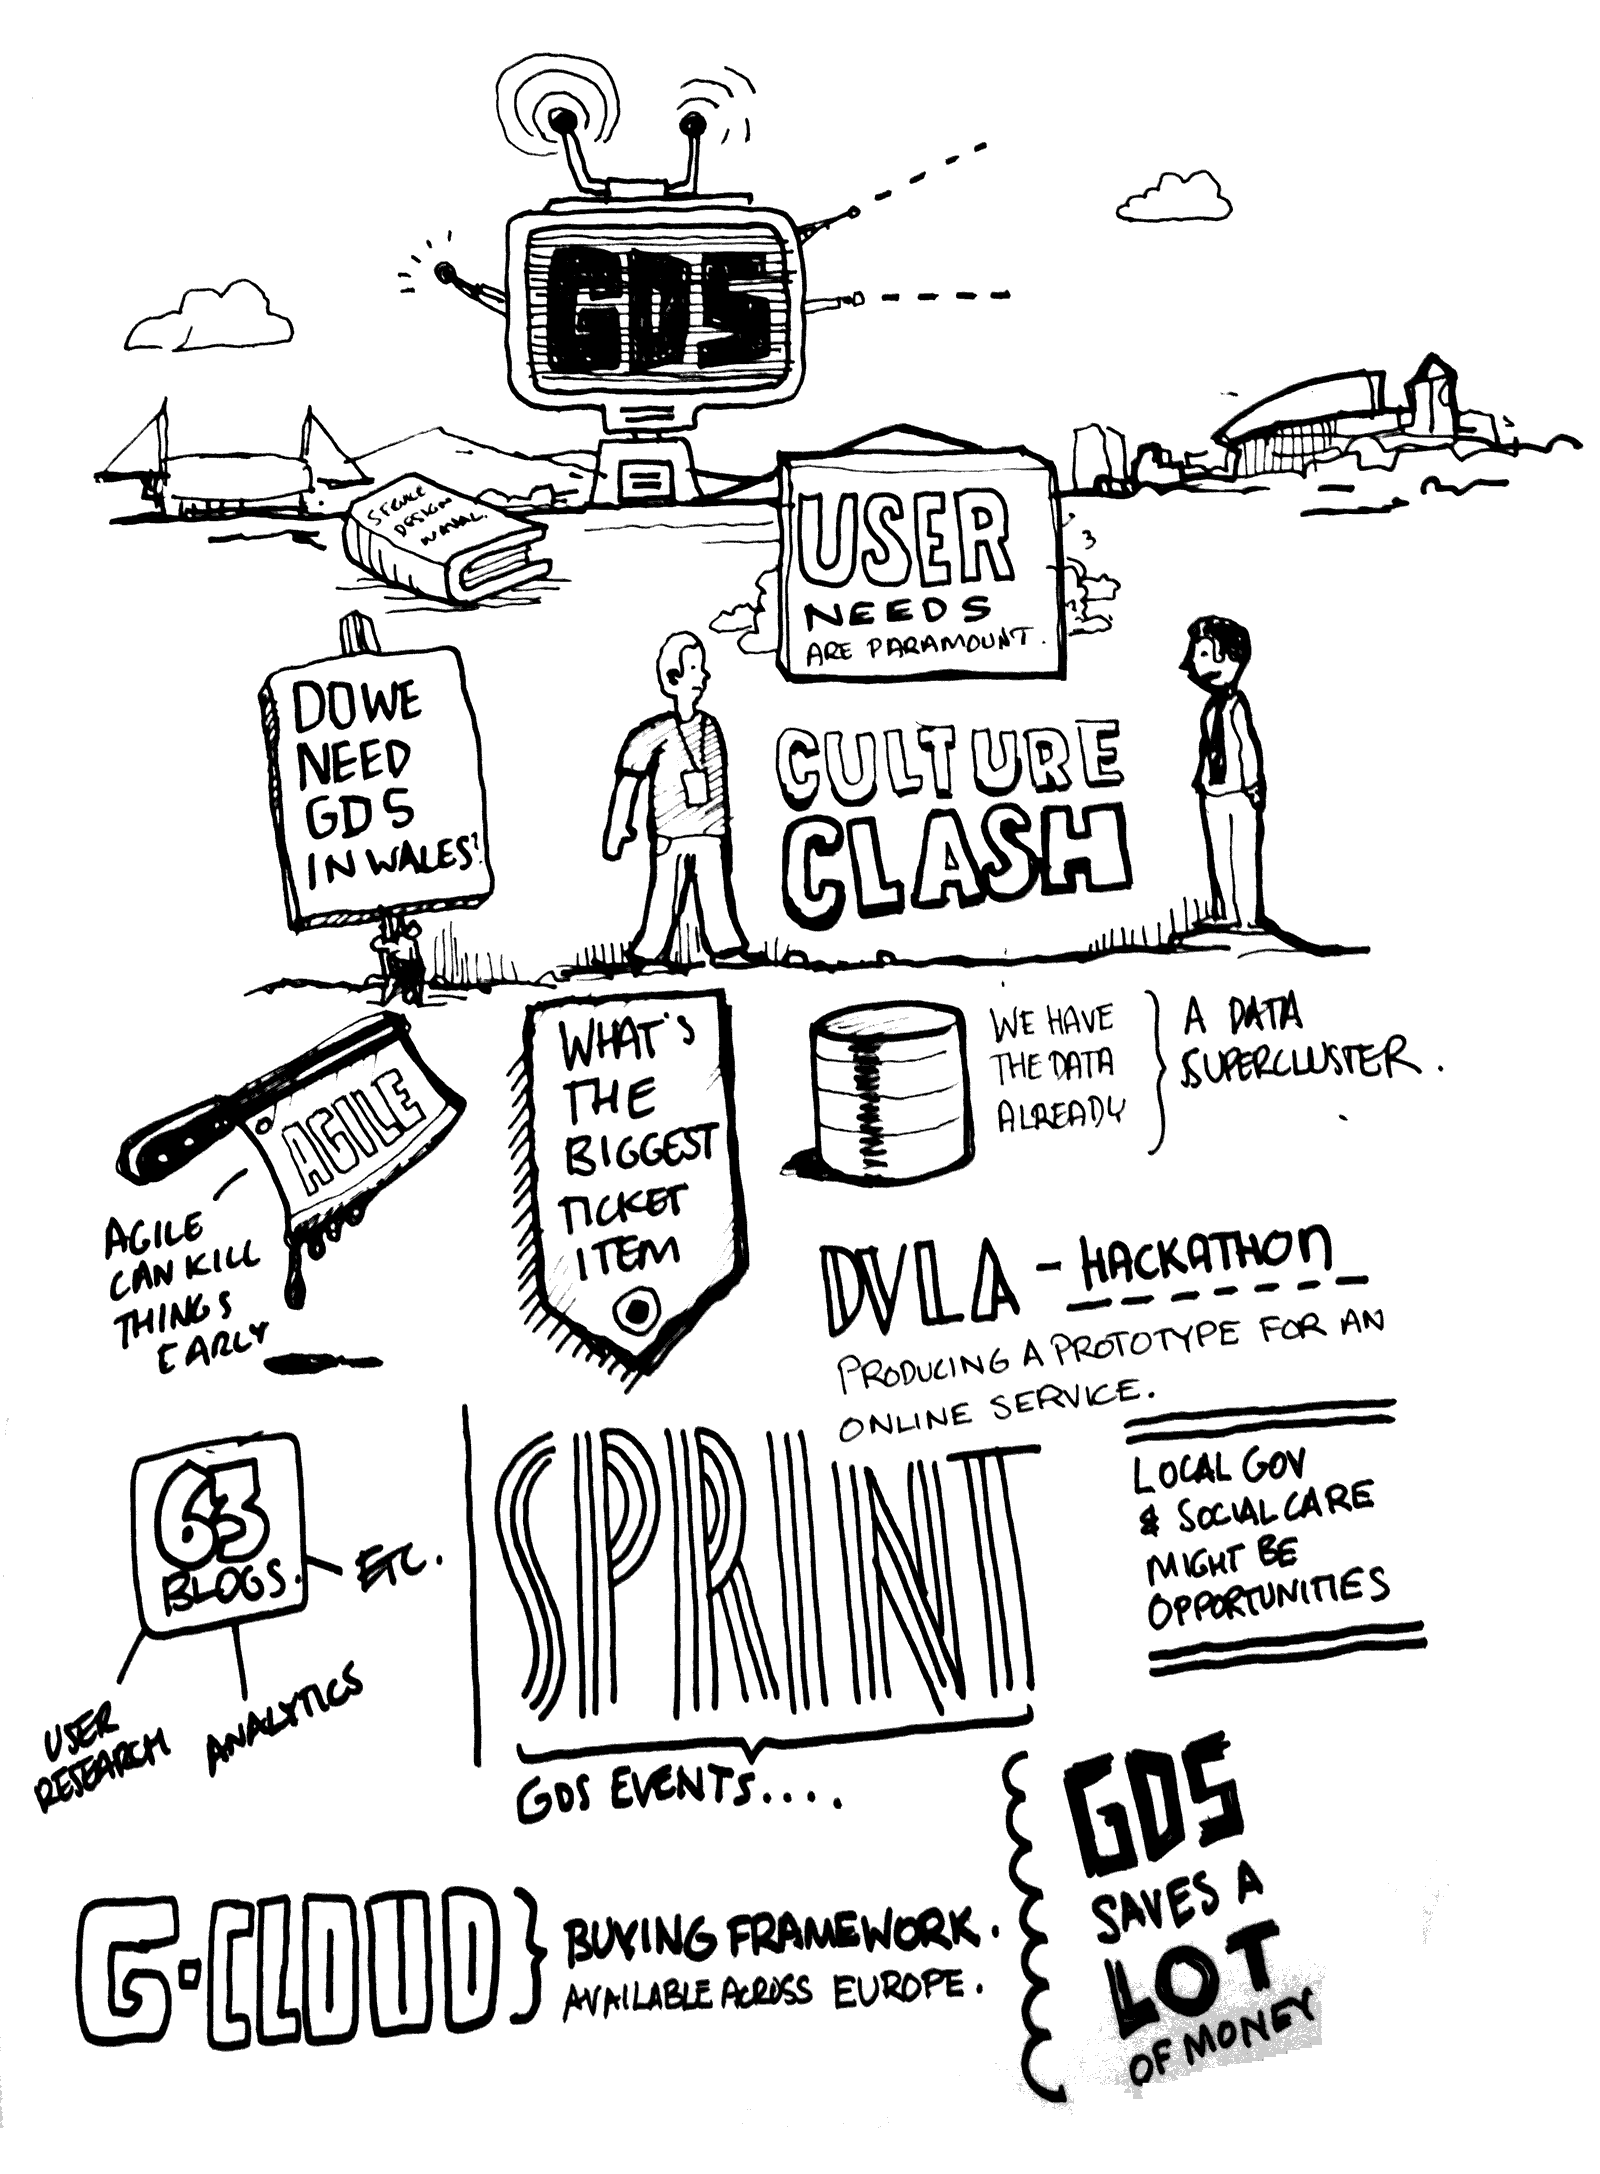 GDS
SERVICE
DESIGN
MANUAL.
USER
NEEDS
ARE PARAMOUNT.
DO WE
NEED
GDS
IN WALES?
CULTURE
CLASH
AGILE
AGILE
CAN KILL
THINGS
EARLY
WHAT'S
THE
BIGGEST
TICKET
ITEM
WE HAVE
THE DATA
ALREADY
A DATA
SUPERCLUSTER.
DVLA - HACKATHON
PRODUCING A PROTOTYPE FOR AN
ONLINE SERVICE.
63
BLOGS.
ETC.
USER
RESEARCH
ANALYTICS
SPRINT
GDS EVENTS....
LOCAL GOV
& SOCIAL CARE
MIGHT BE
OPPORTUNITIES
G-CLOUD
BUYING FRAMEWORK.
AVAILABLE ACROSS EUROPE.
GDS
SAVES A
LOT
OF MONEY